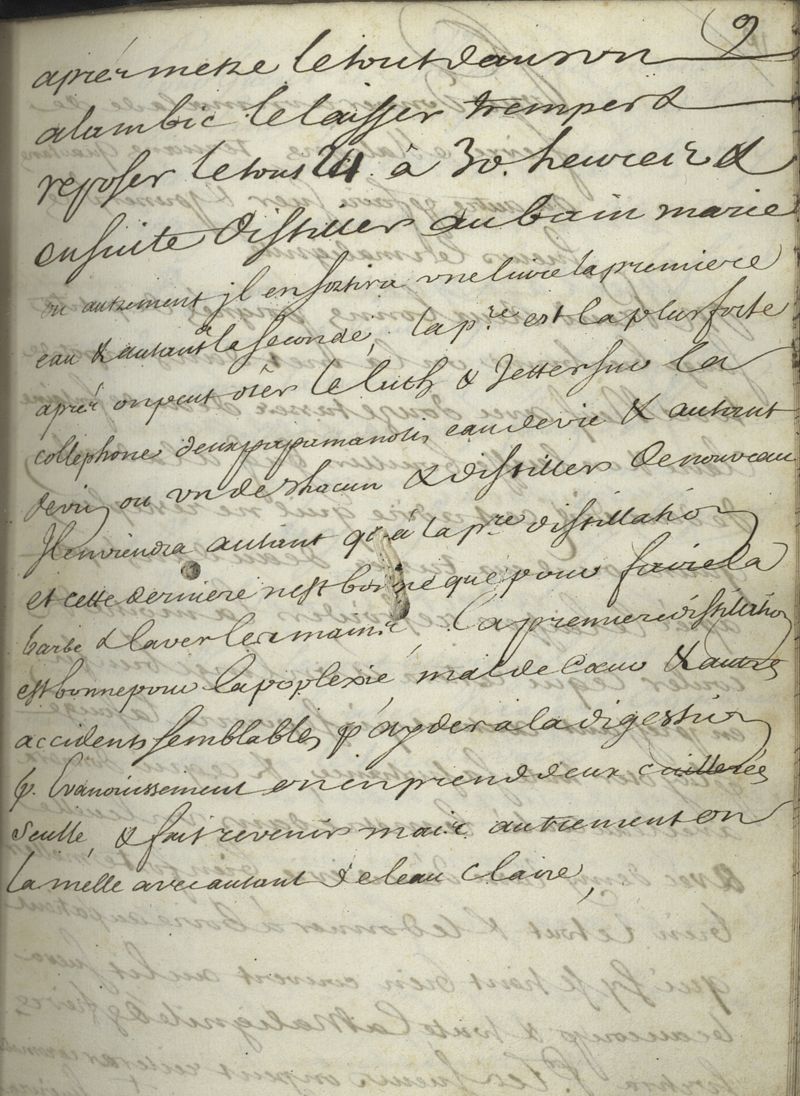 9
aprés mettre le tout dans un
alambic le laisser tremper &
reposer le tout 24 à 30. heures &
ensuite distiller au bain marie
ou autrement jl en sortira une livre la premiere
eau & autant à la seconde, la p.re est la plus forte
aprés on peut oter le luth & Jetter sur la
collophone deux eau de vie & autant
de vin ou un de Chacun & distiller de nouveau
Jl en viendra autant qu'à la p.re distillation
et cette derniere n'est bonne que pour faire la
barbe & laver les mains, la premiere distillation
est bonne pour l'apoplexie, mal de Coeur & autres
accidents semblables, p.r ayder a la digestion
p. Evanouissement on en prend deux cuillerées
seulle, & fait revenir mais autrement on
la melle avec autant de leau Claire,